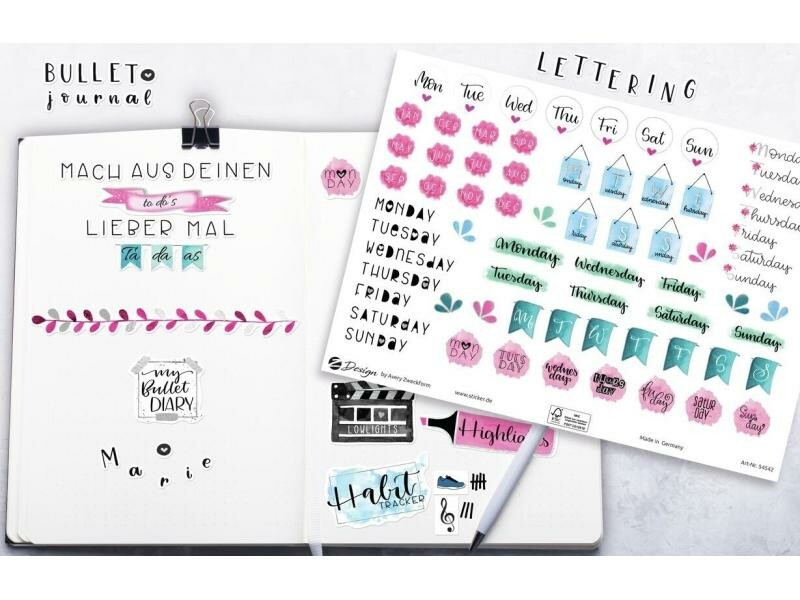 BULLET
journal
LETTERING
MACH AUS DEINEN
to do's
LIEBER MAL
Ta da as
my
Bullet
DIARY
Marie
MON
DAY
LOWLIGHTS
Highlights
Habit
TRACKER
Mon Tue Wed Thu Fri Sat Sun
JAN FEB MAR APR
MAY JUN JUL AUG
SEP OCT NOV DEC
Monday Tuesday Wednesday Thursday
Friday Saturday Sunday
Monday
Tuesday
Wednesday
Thursday
Friday
Saturday
Sunday
MONDAY
TUESDAY
WEDNESDAY
THURSDAY
FRIDAY
SATURDAY
SUNDAY
Monday Wednesday Friday
Tuesday Thursday Saturday Sunday
M T W T F S S
MON DAY TUES DAY wednes day THURS DAY fri day SATUR DAY Sun day
Z Design by Avery Zweckform
www.sticker.de
FSC
MIX
Made in Germany
Art-Nr. 54542